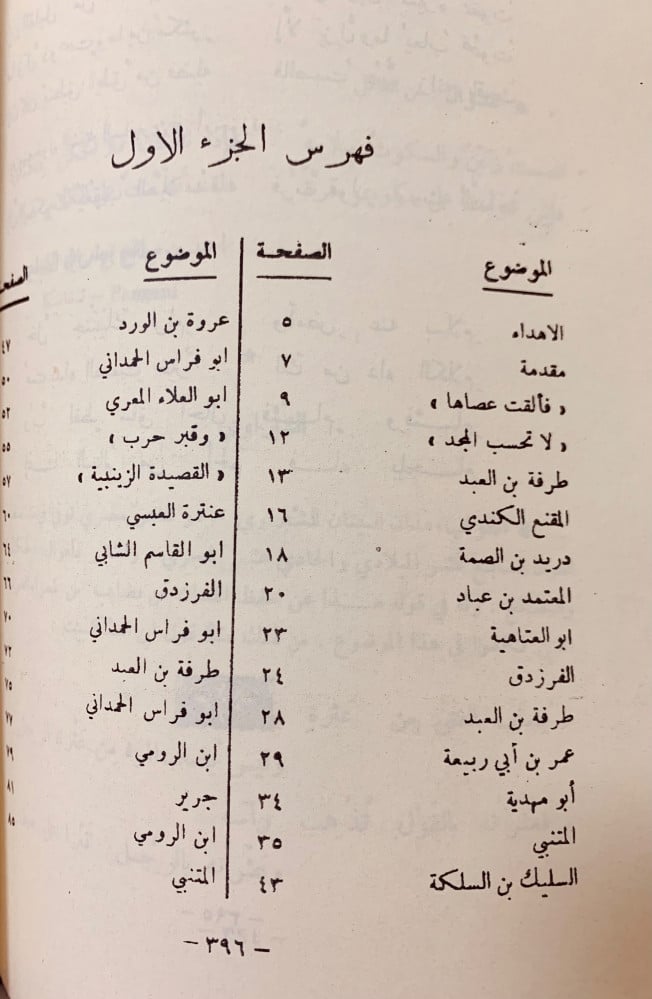 فهرس الجزء الاول
الموضوع الصفحة الموضوع
الاهداء ٥ عروة بن الورد ٤٧
مقدمة ٧ ابو فراس الحمداني ٥٠
« فألقت عصاها » ٩ ابو العلاء المعري ٥٢
« لا تحسب المجد » ١٢ « وقبر حرب » ٥٥
طرفة بن العبد ١٣ « القصيدة الزينبية » ٥٧
المقنع الكندي ١٦ عنترة العبسي ٦٠
دريد بن الصمة ١٨ ابو القاسم الشابي ٦٤
المعتمد بن عباد ٢٠ الفرزدق ٦٦
ابو العتاهية ٢٣ ابو فراس الحمداني ٧٠
الفرزدق ٢٤ طرفة بن العبد ٧٢
طرفة بن العبد ٢٨ ابو فراس الحمداني ٧٥
عمر بن أبي ربيعة ٢٩ ابن الرومي ٧٧
أبو مهدية ٣٤ جرير ٧٩
المتنبي ٣٥ ابن الرومي ٨١
السليك بن السلكة ٤٣ المتنبي ٨٥
– ٣٩٦ –